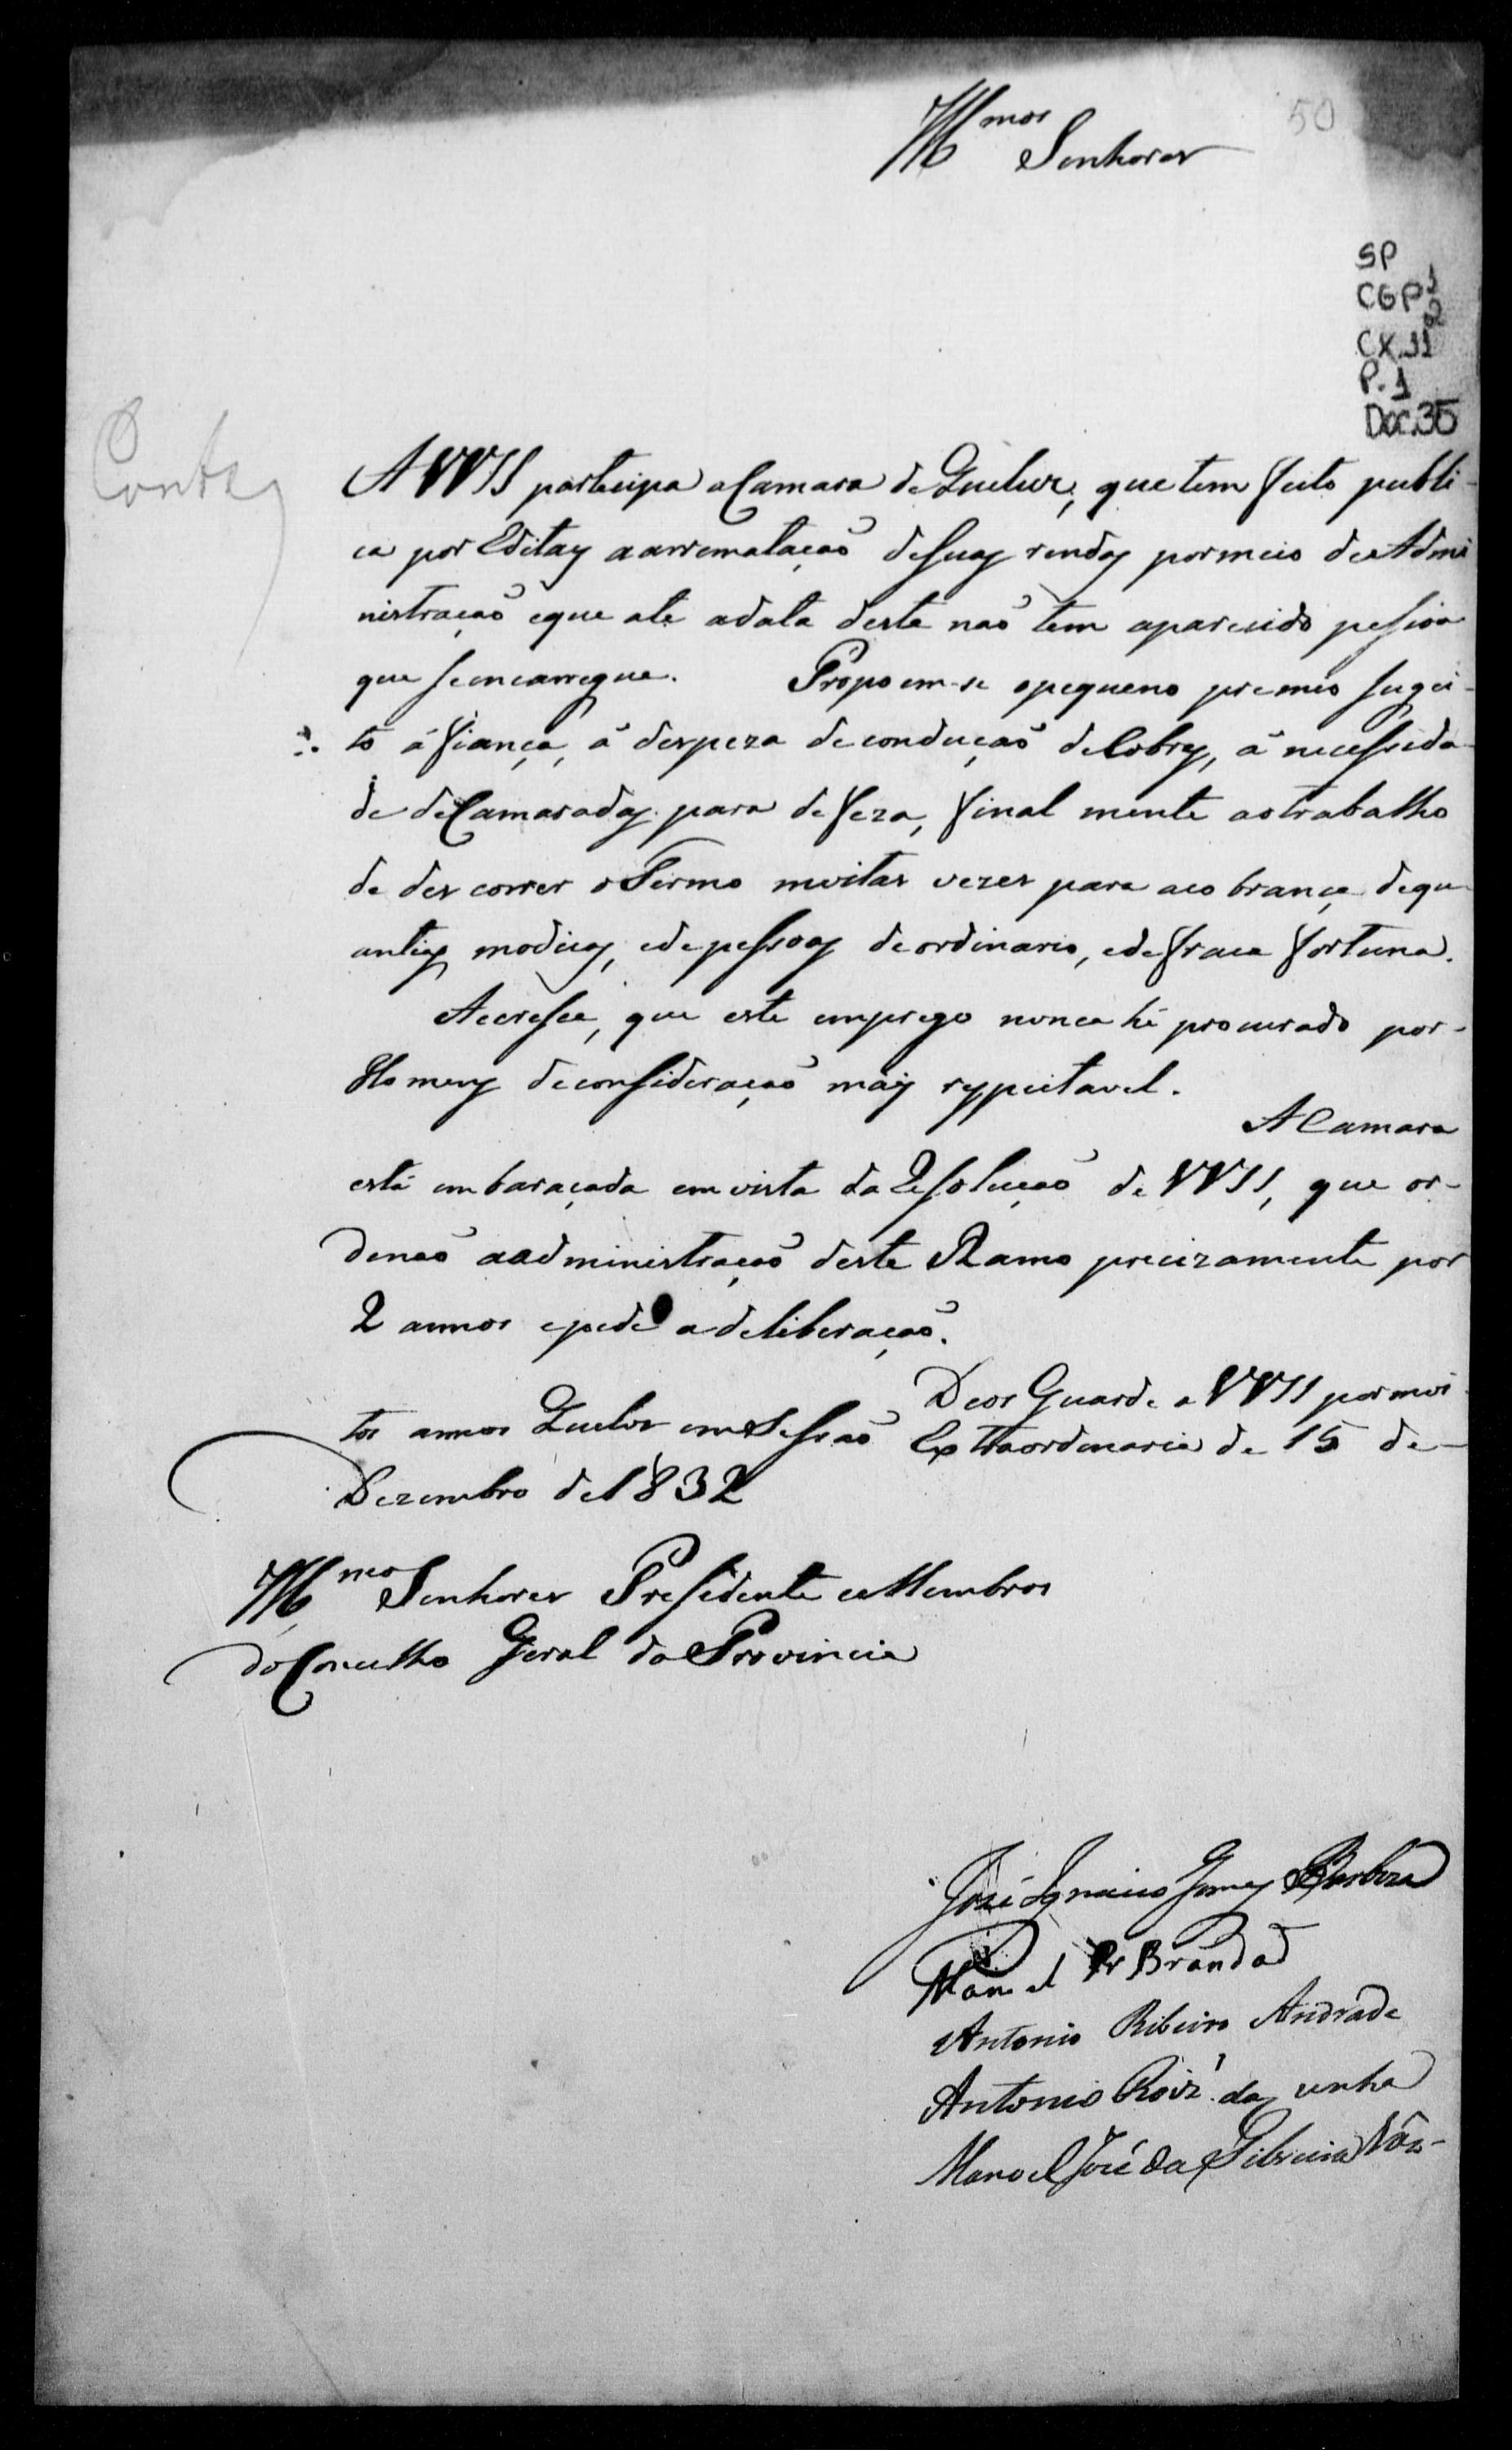 Illmos Senhores
50
SP
CGP 1
2
CX.11
P. 1
Doc.35
Contas
A VVSS participa a Camara de Queluz, que tem feito publi-
ca por Editaes a arrematação de suas rendas por meio de Admi
nistração e que até a data deste não tem aparecido pessoa
que se encarregue. Propoem-se o pequeno premio sugei-
to á fiança, á despeza de condução de Cobres, á necessida-
de de Camaradas para defeza, finalmente ao trabalho
de descorrer o Termo muitas vezes para a cobrança de qu
antias modicas, e de pessoas de ordinario, e de fraca fortuna.
Accresce, que este emprego nunca hé procurado por-
Homens de consideração mais respeitavel.
A Camara
está embaraçada em vista da Resolução de VVSS, que or-
denão a administração deste Ramo precizamente por
2 annos e pede a deliberação.
Deos Guarde a VVSS por mui
tos annos Queluz em Sessão Extraordinaria de 15 de-
Dezembro de 1832
Illmos Senhores Presidente e Membros
do Concelho Geral da Provincia
José Ignacio Gomes Barboza
Manoel Pr Brandaõ
Antonio Ribeiro Andrade
Antonio Roiz da Cunha
Manoel José da Silveira